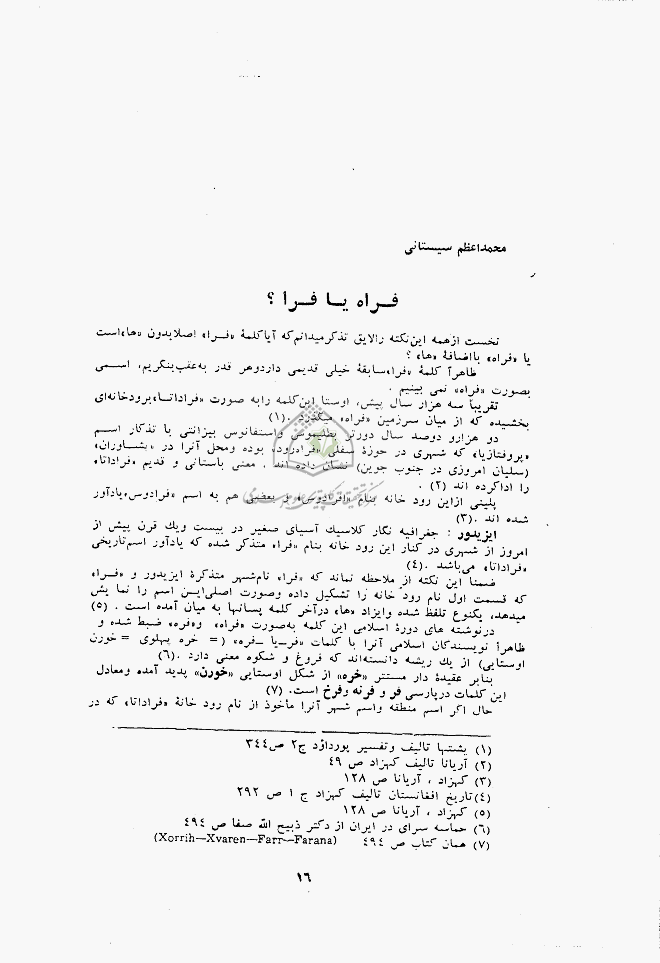 محمداعظم سیستانی
فراه یا فرا ؟
نخست ازهمه این نکته رالایق تذکر میدانم که آیا کلمهٔ «فرا» اصلا بدون «ها» است
یا «فراه» با اضافهٔ «ها» ؟
ظاهرآ کلمهٔ «فرا» سابقهٔ خیلی قدیمی دارد و هر قدر به عقب بنگریم، اسمی
بصورت «فراه» نمی بینیم .
تقریبآ سه هزار سال پیش، اوستا این کلمه را به صورت «فراداتا» برودخانه‌ای
بخشیده که از میان سرزمین «فراه» میگذرد .(۱)
دو هزارو دوصد سال دورتر بطلیموس واستفانوس بیزانتی با تذکار اسم
«پروفتازیا» که شهری در حوزهٔ سفلی «فراه‌رود» بوده ومحل آنرا در «پشاوران»
(سلیان امروزی در جنوب جوین) نشان داده اند . معنی باستانی و قدیم «فراداتا»
را اداکرده اند (۲) .
پلینی ازاین رود خانه بنام «افرادوس» و بعضی هم به اسم «فرادوس» یادآور
شده اند .(۳)
ایزیدور : جغرافیه نگار کلاسیک آسیای صغیر در بیست ویک قرن پیش از
امروز از شهری در کنار این رود خانه بنام «فرا» متذکر شده که یادآور اسم تاریخی
«فراداتا» می‌باشد .(٤)
ضمنآ این نکته از ملاحظه نماند که «فرا» نام شهر متذکرهٔ ایزیدور و «فراه»
که قسمت اول نام رود خانه را تشکیل داده وصورت اصلی این اسم را نمایش
میدهد، یکنوع تلفظ شده وایزاد «ها» درآخر کلمه پسانها به میان آمده است . (۵)
درنوشته های دورهٔ اسلامی این کلمه به‌صورت «فراه» و «فره» ضبط شده و
ظاهرآ نویسندگان اسلامی آنرا با کلمات «فر—یا —فره» (= خره پهلوی = خورن
اوستایی) از یک ریشه دانسته‌اند که فروغ و شکوه معنی دارد .(۶)
بنابر عقیدهٔ دار مستتر «خره» از شکل اوستایی «خورن» پدید آمده ومعادل
این کلمات درپارسی فر و فرنه وفرخ است. (۷)
حال اگر اسم منطقه واسم شهر آنرا ماخوذ از نام رود خانهٔ «فراداتا» که در
(۱) یشتها تالیف وتفسیر پورداؤد ج۲ ص۳٤٤
(۲) آریانا تالیف کهزاد ص ٤۹
(۳) کهزاد ، آریانا ص ۱۲۸
(٤) تاریخ افغانستان تالیف کهزاد ج ۱ ص ۲۹۲
(۵) کهزاد ، آریانا ص ۱۲۸
(۶) حماسه سرای در ایران از دکتر ذبیح الله صفا ص ٤۹٤
(۷) همان کتاب ص ٤۹٤ (Xorrih—Xvaren—Farr—Farana)
۱۶